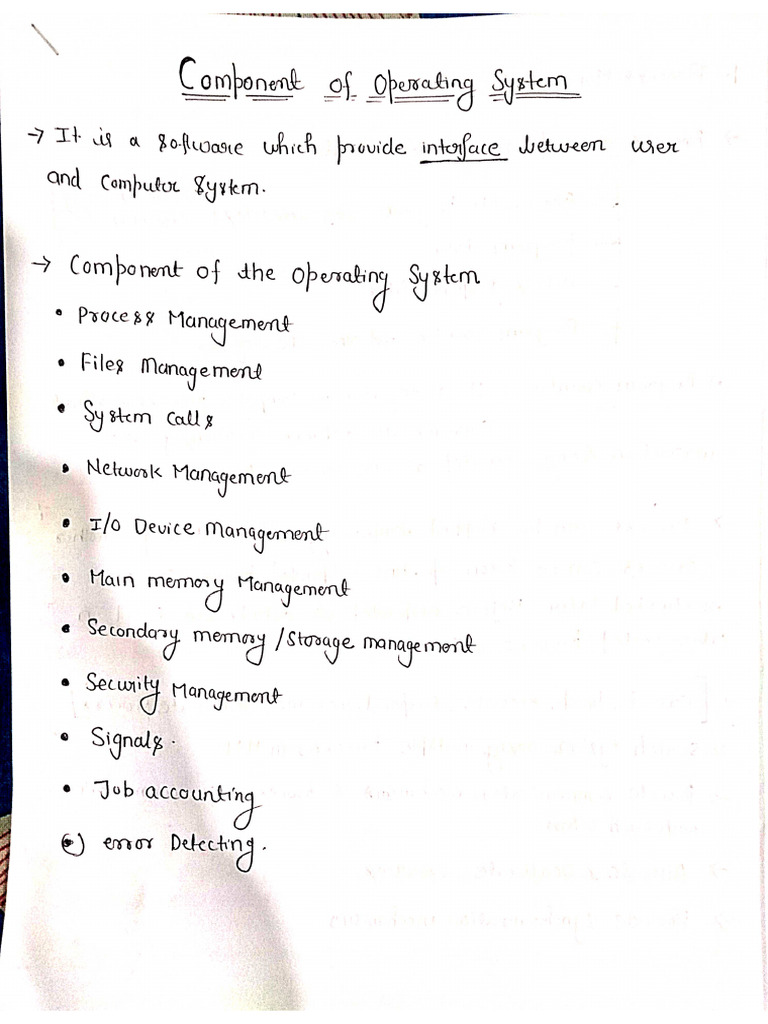 Component of Operating System
→ It is a software which provide interface between user
and Computer System.
→ Component of the Operating System
• Process Management
• Files Management
• System Calls
• Network Management
• I/O Device Management
• Main memory Management
• Secondary memory / Storage management
• Security Management
• Signals.
• Job accounting
•) error Detecting.